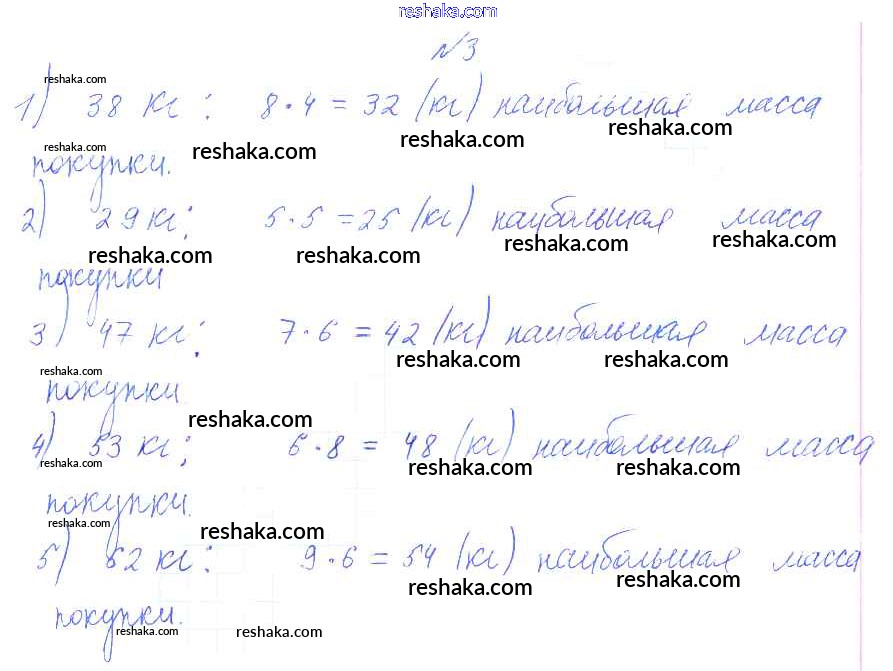 reshaka.com
№3
reshaka.com
1) 38 кг: 8·4 = 32 (кг) наибольшая масса
reshaka.com reshaka.com
покупки. reshaka.com
reshaka.com
2) 29 кг; 5·5 = 25 (кг) наибольшая масса
reshaka.com reshaka.com reshaka.com reshaka.com
покупки
3) 47 кг: 7·6 = 42 (кг) наибольшая масса
reshaka.com reshaka.com reshaka.com
покупки
reshaka.com
4) 53 кг; 6·8 = 48 (кг) наибольшая масса
reshaka.com reshaka.com reshaka.com
покупки.
reshaka.com reshaka.com
5) 62 кг: 9·6 = 54 (кг) наибольшая масса
reshaka.com reshaka.com
покупки.
reshaka.com reshaka.com